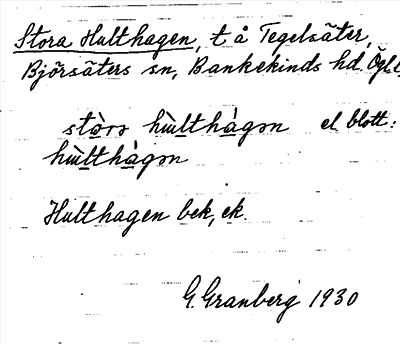 Stora Hulthagen, t å Tegelsäter,
Björsäters sn, Bankekinds hd. Ögl.
stòrɔ hùlthágɔn el blott:
hùlthágɔn
Hulthagen bek, ek.
G. Granberg 1930